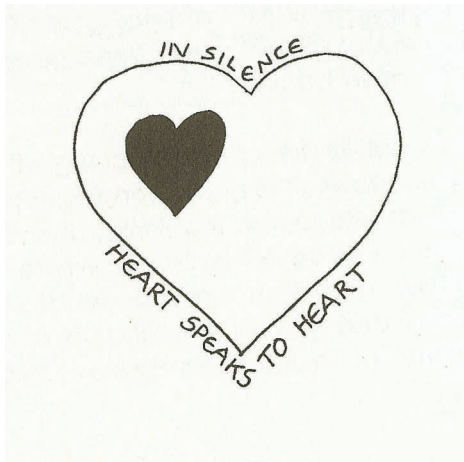 IN SILENCE
HEART SPEAKS TO HEART